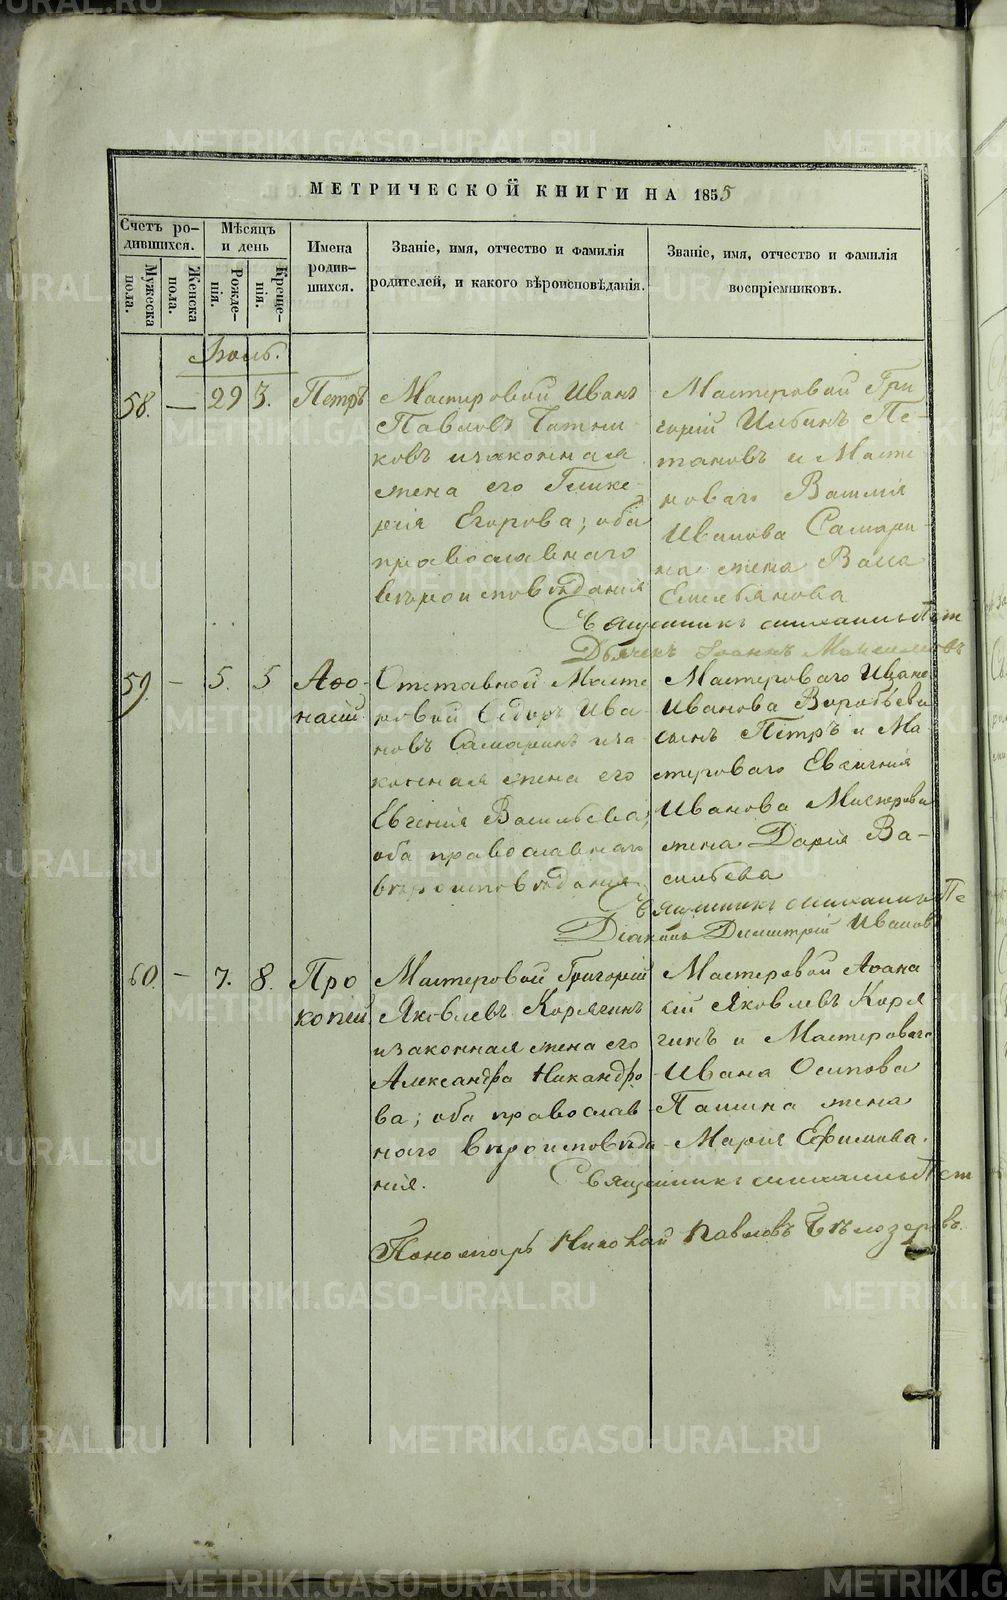 МЕТРИЧЕСКОЙ КНИГИ НА 1855
Счетъ ро-
дившихся.
Мужеска
пола.
Женска
пола.
Мѣсяцъ
и день
Рожде-
нія.
Креще-
нія.
Имена
родив-
шихся.
Званіе, имя, отчество и фамилія
родителей, и какого вѣроисповѣданія.
Званіе, имя, отчество и фамилія
воспріемниковъ.
58. — 29 3. Петръ
Мастеровой Иванъ
Павловъ
ковъ изаконная
жена его Глике-
рія Егорова; оба
православнаго
вѣроисповѣданія
Мастеровой Гри
горій Ильинъ
и Масте
роваго
Иванова Самари-
на жена
Емельянова
Священникъ
Дьячекъ Іоаннъ
59. — 5. 5 Аѳо-
насій
Отставной Масте
ровой Ѳедоръ Ива
новъ Самаринъ иза
конная жена его
Евгенія Васильева;
оба православнаго
вѣроисповѣданія
Мастероваго Ивана
Иванова Воробьева
сынъ Петръ и Ма
стероваго Евгенія
Иванова
жена Дарія Ва-
сильева
Священникъ
Діаконъ Димитрій Ивановъ
60. — 7. 8. Про
копій
Мастеровой Григорій
Яковлевъ Корягинъ
изаконная жена его
Александра Никандро
ва; оба православ
наго вѣроисповѣда
нія.
Мастеровой Аѳана
сій Яковлевъ Коря
гинъ и Мастероваго
Ивана Осипова
Пашина жена
Марія Ефимова.
Священникъ
Пономарь Николай Павловъ Бѣлозеровъ.
METRIKI.GASO-URAL.RU